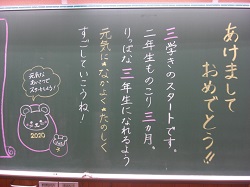 あけまして
おめでとう!!
三学きのスタートです。
二年生ものこり三ヵ月。
りっぱな三年生になれるよう
元気に★なかよく★たのしく
すごしていこうね!
元気に
あいさつで
スタートしよう!
2020